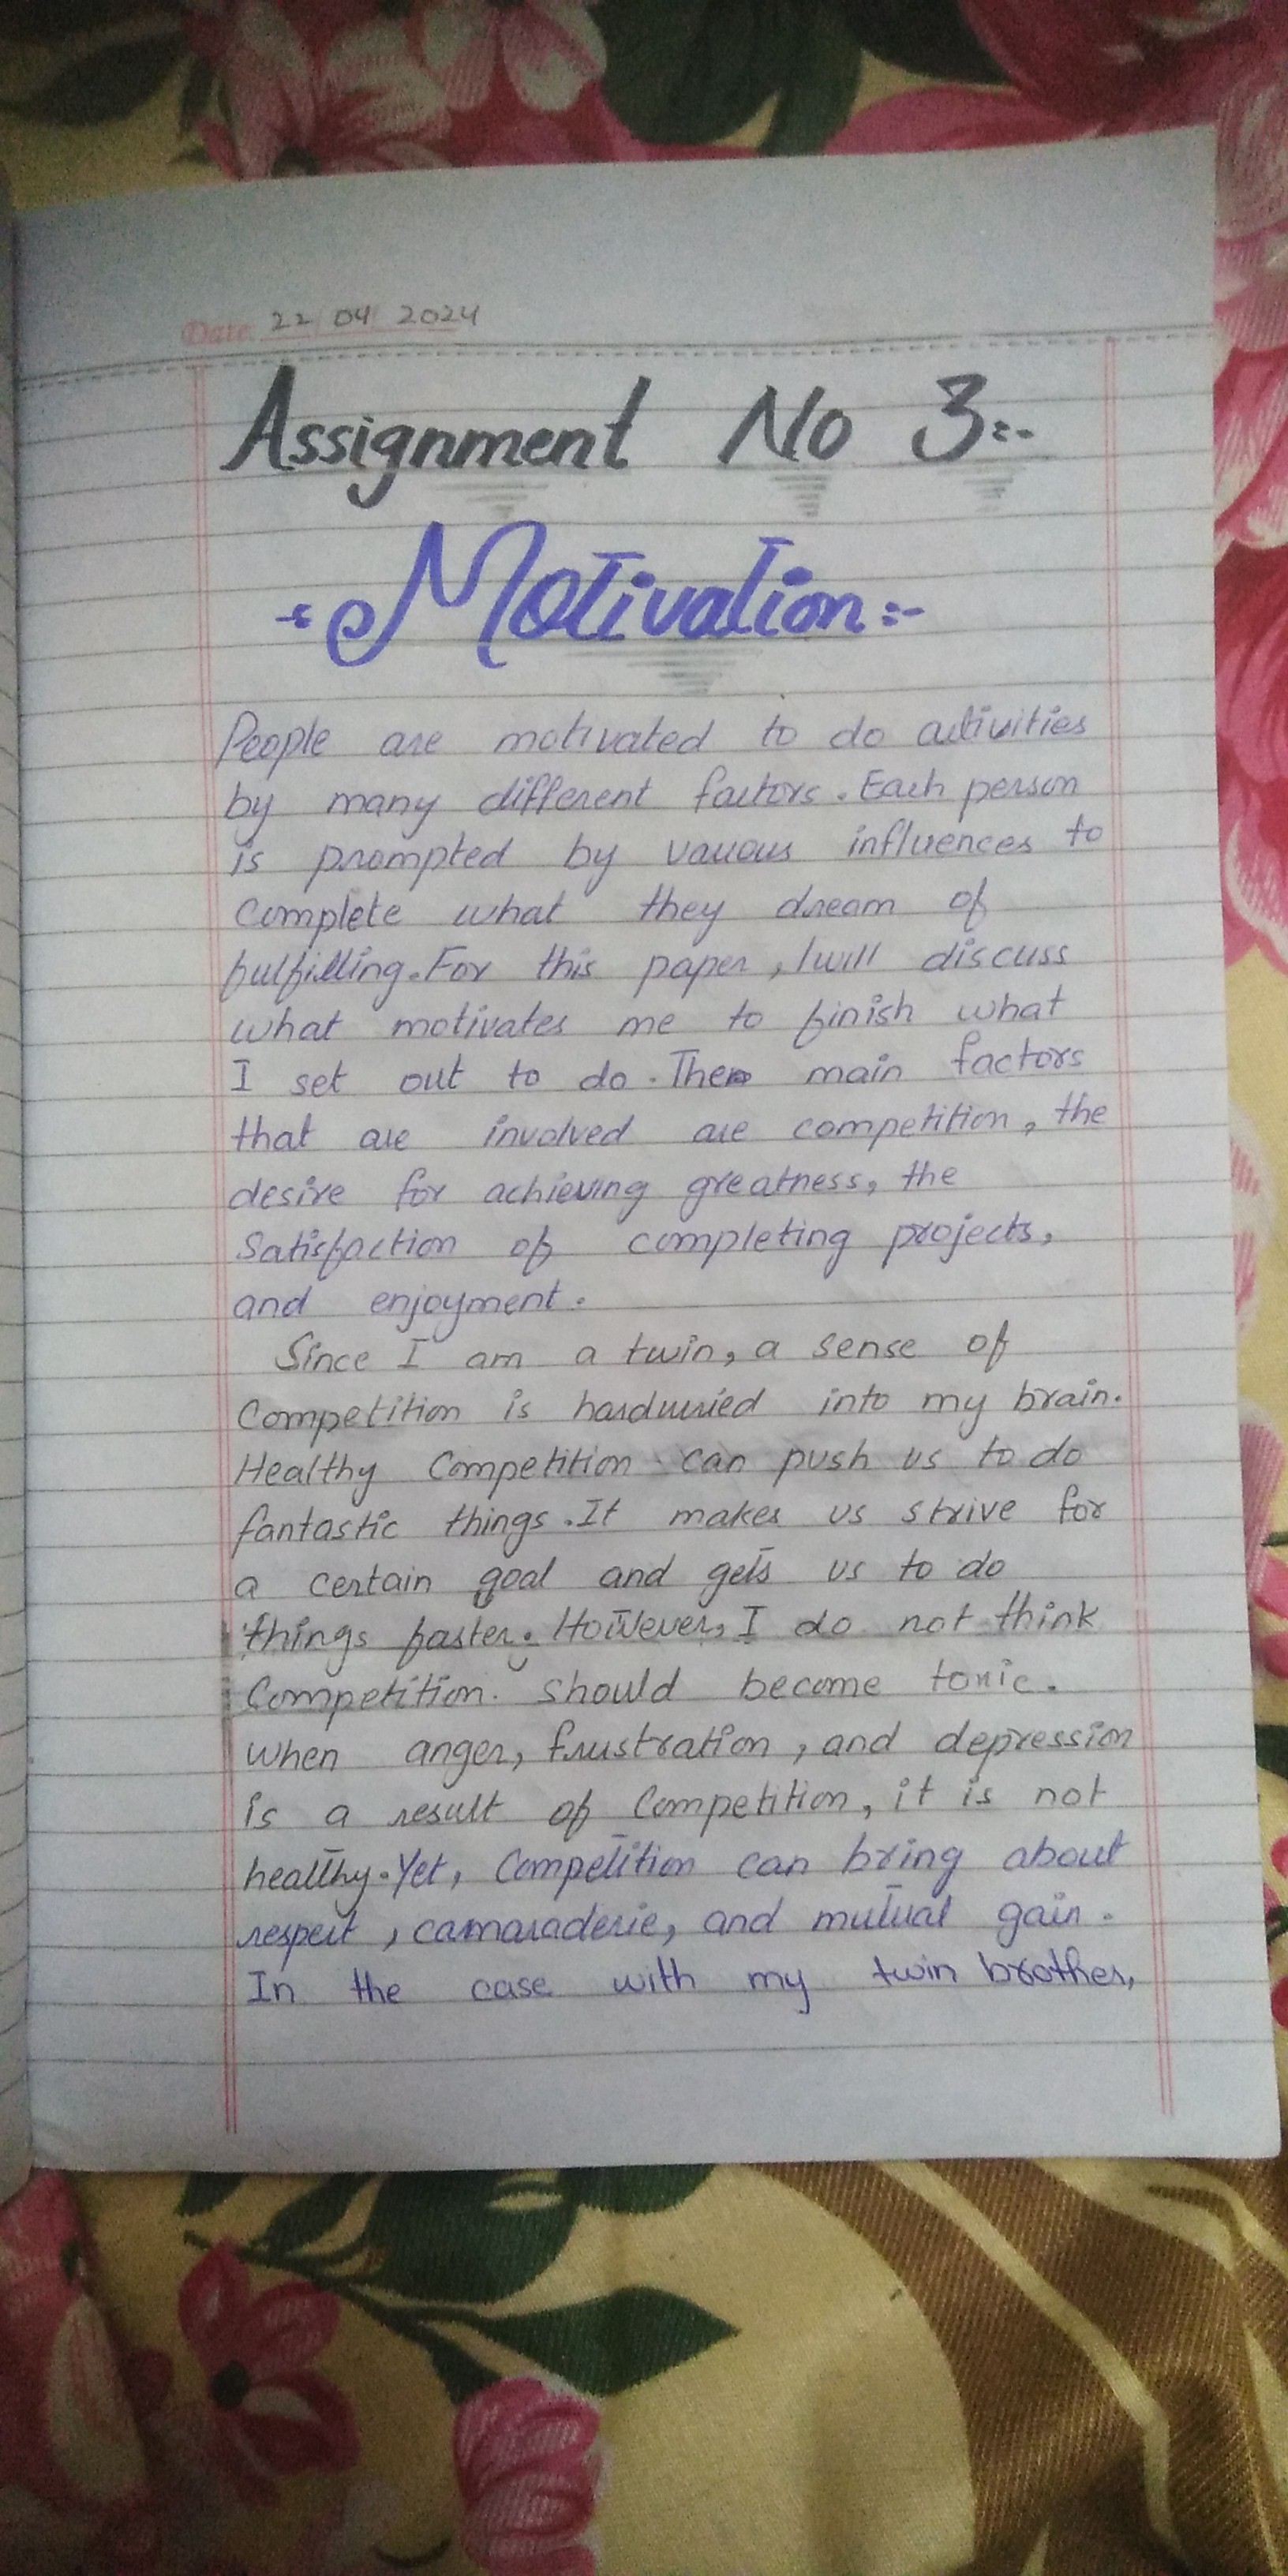 Date 22 04 2024
Assignment No 3:-
-:Motivation:-
People are motivated to do activities
by many different factors. Each person
is prompted by various influences to
complete what they dream of
fulfilling. For this paper, I will discuss
what motivates me to finish what
I set out to do. The main factors
that are involved are competition, the
desire for achieving greatness, the
Satisfaction of completing projects,
and enjoyment.
Since I am a twin, a sense of
Competition is hardwried into my brain.
Healthy Competition can push us to do
fantastic things. It makes us strive for
a certain goal and gets us to do
things faster. However, I do not think
Competition. should become toxic.
when anger, frustration, and depression
is a result of Competition, it is not
healthy. Yet, Competition can bring about
respect, camaraderie, and mutual gain.
In the case with my twin brother,